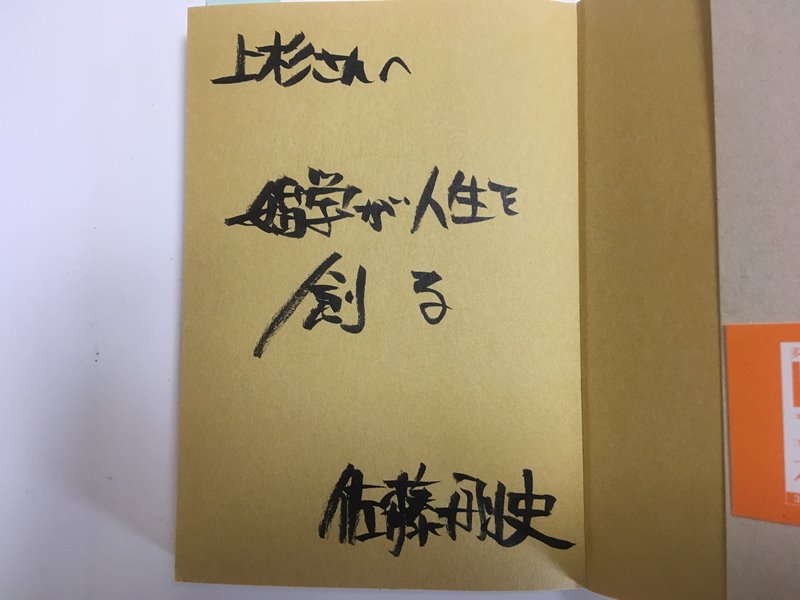 上杉さんへ
婚学が人生を
創る
佐藤剛史